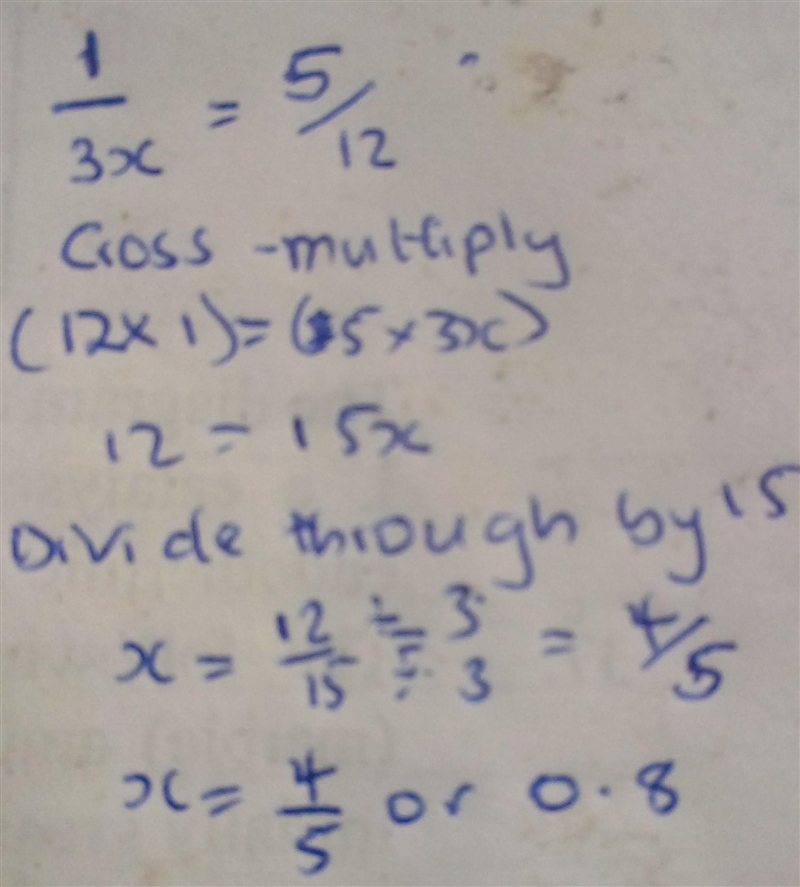 1/3x = 5/12
Cross-multiply
(12×1)=(5×3x)
12 = 15x
Divide through by 15
x = 12/15 ÷ 3/÷ 3 = 4/5
x = 4/5 or 0.8